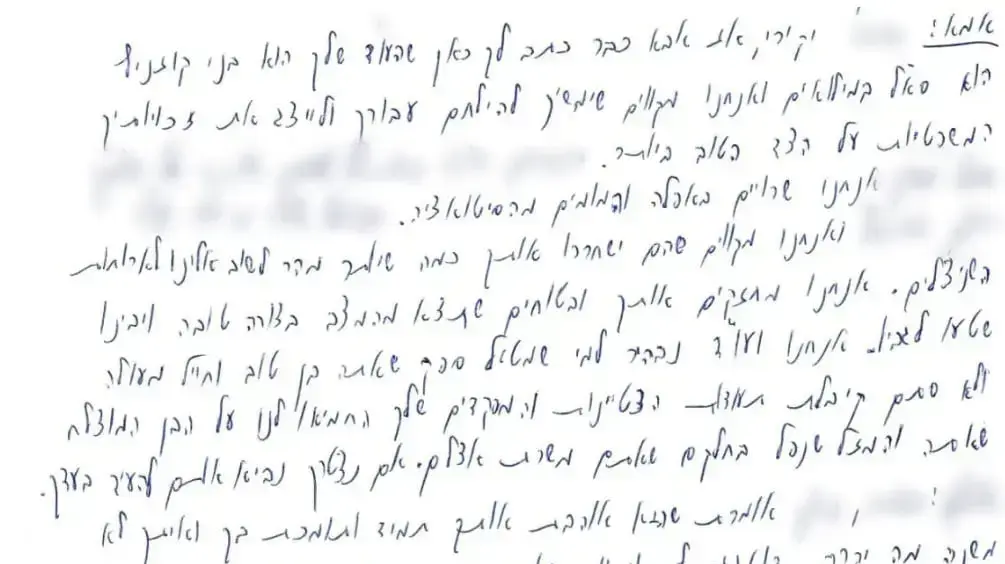 אמא: יקירי, אז אבא כבר כתב לך כאן שהעו"ד שלך הוא בני קוזניץ
הוא סא"ל במילואים ואנחנו מקווים שימשיך להילחם עבורך ולייצג את זכויותיך
המשפטיות על הצד הטוב ביותר.
אנחנו שרויים באפלה והמומים מהסיטואציה.
ואנחנו מקווים שהם ישחררו אותך כמה שיותר מהר לשוב אלינו לארוחות
השניצלים. אנחנו מחזקים אותך ובטוחים שתצא מהמצב בצורה טובה ויבינו
שטעו לגביך. אנחנו ועו"ד נבהיר למי שמטיל ספק שאתה בן טוב וחייל מעולה
ולא סתם קיבלת תעודת הצטיינות והמפקדים שלך החמיאו לנו על הבן המוצלח
שאתה והמזל שנפל בחלקם שאתה משרת אצלם. אם נצטרך נביא אותם להעיד בעדך.
אומרת שהיא אוהבת אותך תמיד ותומכת בך ואיתך לא
משנה מה